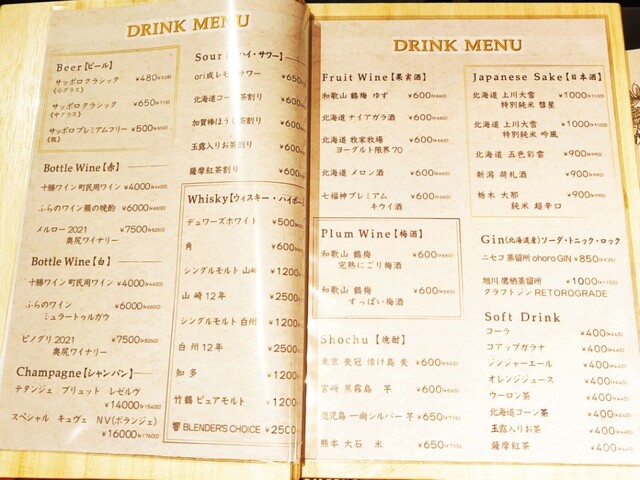 DRINK MENU
Beer【ビール】
サッポロクラシック ¥480(¥528)
(小グラス)
サッポロクラシック ¥650(¥715)
(中グラス)
サッポロプレミアムフリー ¥500(¥550)
(瓶)
Bottle Wine【赤】
十勝ワイン 町民用ワイン ¥4000(¥4400)
ふらのワイン 熊の晩酌 ¥6000(¥6600)
メルロー 2021 ¥7500(¥8250)
奥尻ワイナリー
Bottle Wine【白】
十勝ワイン 町民用ワイン ¥4000(¥4400)
ふらのワイン ¥6000(¥6600)
ミュラートゥルガウ
ピノグリ 2021 ¥7500(¥8250)
奥尻ワイナリー
Champagne【シャンパン】
テタンジェ ブリュット レゼルヴ
¥14000(¥15400)
スペシャル キュヴェ NV(ボランジェ)
¥16000(¥17600)
Sour ハイ・サワー】
ori成レモンサワー ¥650
北海道コーン茶割り ¥600
加賀棒ほうじ茶割り ¥600
玉露入りお茶割り ¥600
薩摩紅茶割り ¥600
Whisky【ウィスキー・ハイボー
デュワーズホワイト ¥500
角 ¥600
シングルモルト 山崎 ¥1200
山崎 12年 ¥2500
シングルモルト 白州 ¥1200
白州 12年 ¥2500
知多 ¥1200
竹鶴 ピュアモルト ¥1200
響 BLENDER'S CHOICE ¥2500
DRINK MENU
Fruit Wine【果実酒】
和歌山 鶴梅 ゆず ¥600(¥660)
北海道 ナイアガラ酒 ¥600(¥660)
北海道 牧家牧場 ¥600(¥660)
ヨーグルト限界70
北海道 メロン酒 ¥600(¥660)
七福神プレミアム ¥600(¥660)
キウイ酒
Plum Wine【梅酒】
和歌山 鶴梅 ¥600(¥660)
完熟にごり梅酒
和歌山 鶴梅 ¥600(¥660)
すっぱい梅酒
Shochu【焼酎】
東京 麦冠 情け島 麦 ¥600(¥660)
宮崎 黒霧島 芋 ¥600(¥660)
鹿児島 一尚シルバー 芋 ¥650(¥715)
熊本 大石 米 ¥650(¥715)
Japanese Sake【日本酒】
北海道 上川大雪 ¥1000(¥1100)
特別純米 彗星
北海道 上川大雪 ¥1000(¥1100)
特別純米 吟風
北海道 五色彩雲 ¥900(¥990)
新潟 荷札酒 ¥900(¥990)
栃木 大那 ¥900(¥990)
純米 超辛口
Gin(北海道産)ソーダ・トニック・ロック
ニセコ 蒸留所 ohoro GIN ¥850(¥935)
旭川 鷹栖蒸留所 ¥1000(¥1100)
クラフトジン RETOROGRADE
Soft Drink
コーラ ¥400(¥440)
コアップガラナ ¥400(¥440)
ジンジャーエール ¥400(¥440)
オレンジジュース ¥400(¥440)
ウーロン茶 ¥400(¥440)
北海道コーン茶 ¥400(¥440)
玉露入りお茶 ¥400(¥440)
薩摩紅茶 ¥400(¥440)